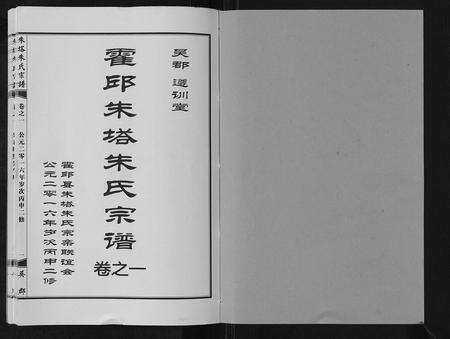 吴郡 遵训堂
霍邱朱塔朱氏宗谱
卷之一
霍邱县朱塔朱氏宗亲联谊会
公元二零一六年岁次丙申二修
朱塔朱氏宗谱
卷之一
公元二零一六年岁次丙申二修
吴郡